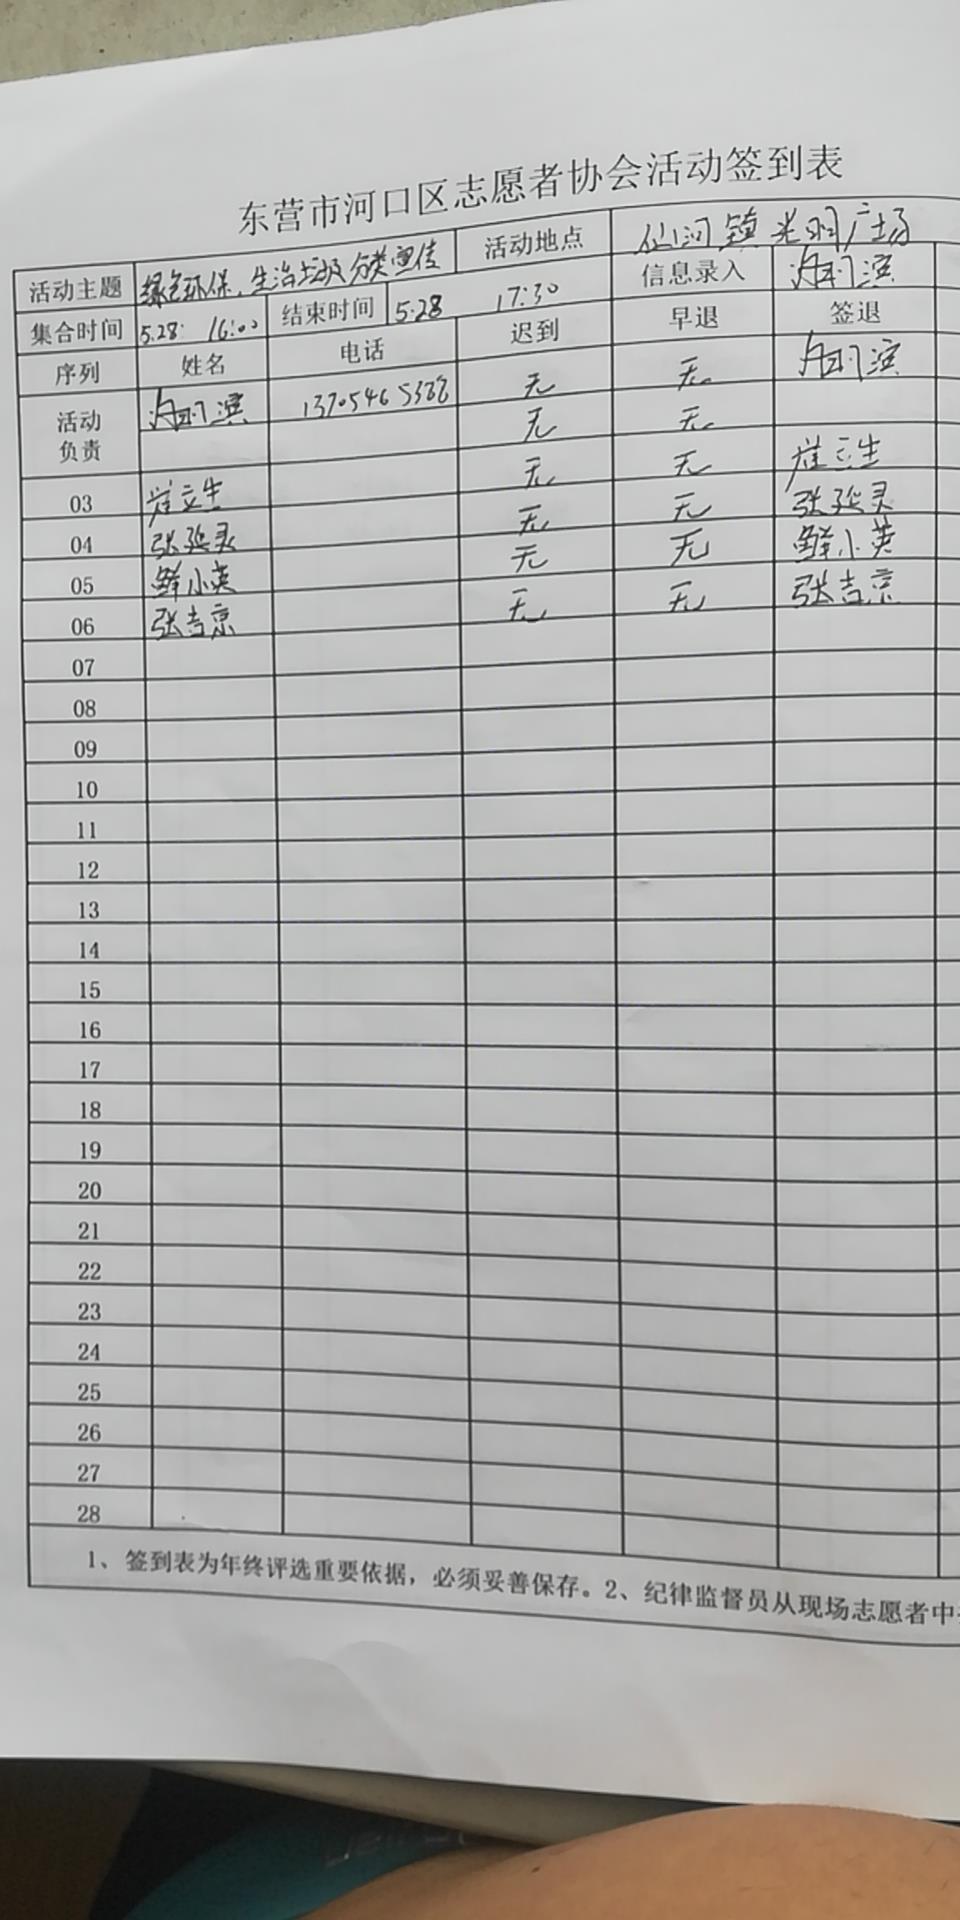 东营市河口区志愿者协会活动签到表
活动主题 绿色环保、生活垃圾分类宣传 活动地点 仙河镇 广场
集合时间 5.28: 16:00 结束时间 5.28 17:30 信息录入
序列 姓名 电话 迟到 早退 签退
活动负责 无 无
无 无
03 崔立生 无 无 崔立生
04 张延灵 无 无 张延灵
05 鲜小英 无 无 鲜小英
06 张吉京 无 无 张吉京
07
08
09
10
11
12
13
14
15
16
17
18
19
20
21
22
23
24
25
26
27
28
1、签到表为年终评选重要依据，必须妥善保存。2、纪律监督员从现场志愿者中